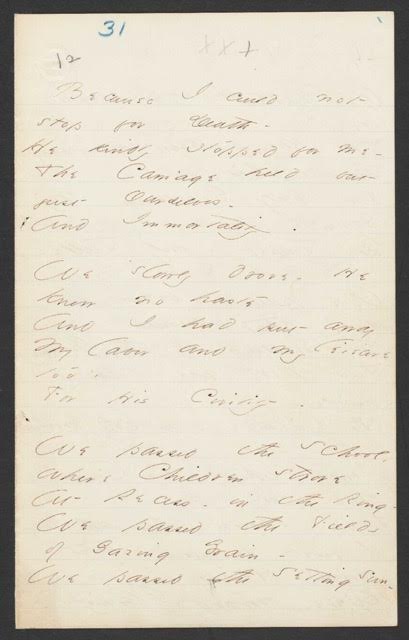 31
XX+
12
Because I could not
stop for Death -
He kindly stopped for me -
The Carriage held but
just Ourselves -
And Immortality.
We slowly drove - He
knew no haste
And I had put away
My labor and my leisure
too,
For His Civility -
We passed the School,
where Children strove
At Recess - in the Ring -
We passed the Fields
of Gazing Grain -
We passed the Setting Sun -